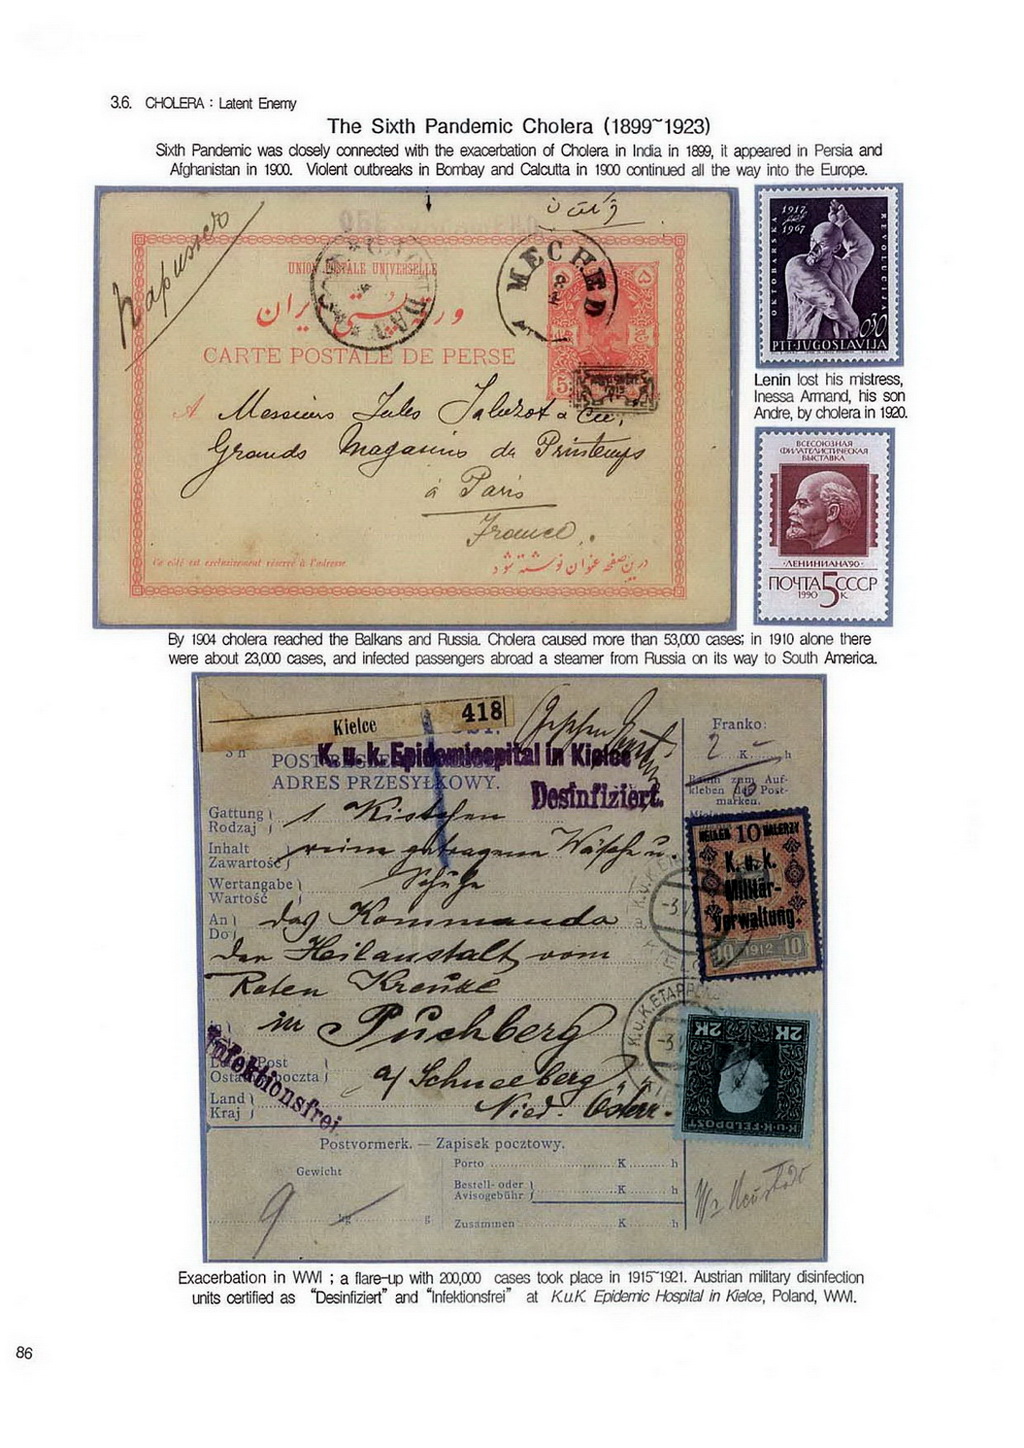 3.6. CHOLERA : Latent Enemy
The Sixth Pandemic Cholera (1899~1923)
Sixth Pandemic was closely connected with the exacerbation of Cholera in India in 1899, it appeared in Persia and
Afghanistan in 1900. Violent outbreaks in Bombay and Calcutta in 1900 continued all the way into the Europe.
UNION POSTALE UNIVERSELLE
MECHED
CARTE POSTALE DE PERSE
5
A Messieurs Jules Jaluzot & Cie,
Grands Magasins du Printemps
à Paris
France
Ce côté est exclusivement réservé à l'adresse
درین صفحه عنوان نوشته شود
1917
1967
OKTOBARSKA
REVOLUCIJA
030
PTT-JUGOSLAVIJA
Lenin lost his mistress,
Inessa Armand, his son
Andre, by cholera in 1920.
ВСЕСОЮЗНАЯ
ФИЛАТЕЛИСТИЧЕСКАЯ
ВЫСТАВКА
·ЛЕНИНИАНА'90·
ПОЧТА 5 СССР
1990 К.
By 1904 cholera reached the Balkans and Russia. Cholera caused more than 53,000 cases; in 1910 alone there
were about 23,000 cases, and infected passengers abroad a steamer from Russia on its way to South America.
Kielce 418
K. u. k. Epidemiespital in Kielce
ADRES PRZESYŁKOWY.
Desinfiziert.
Franko:
2 K. h
Raum zum Auf-
kleben der Post-
marken.
Gattung
Rodzaj
1 Kistchen
Inhalt
Zawartość
reine getragene Wäsche u.
Wertangabe
Wartość
Schuhe
An
Do
das Kommando
der Heilanstalt vom
Roten Kreuze
in Puchberg
a/ Schneeberg
Nied. Österr.
Infektionsfrei
Land
Kraj
HELLER 10 HALERZY
K. u. k.
Militär-
verwaltung.
10 1912 10
K.u.K. ETAPPEN
2K 2K
K·u·K·FELDPOST
Postvormerk. — Zapisek pocztowy.
Gewicht
9 kg g
Porto K h
Bestell- oder
Avisogebühr K h
Zusammen K h
Exacerbation in WWI ; a flare-up with 200,000 cases took place in 1915~1921. Austrian military disinfection
units certified as "Desinfiziert" and "Infektionsfrei" at K.u.K. Epidemic Hospital in Kielce, Poland, WWI.
86